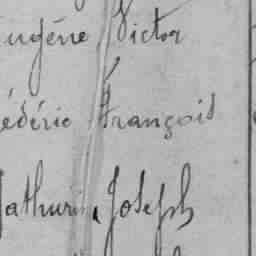 ugène Victor
édéric François
athurin Joseph